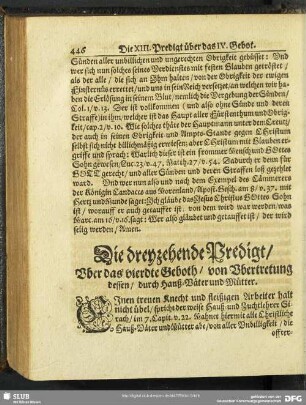 446 Die XIII. Predigt über das IV. Gebot.
Sünden aller unbillichen und ungerechten Obrigkeit gebüsset: Und
wer sich nun solches seines Verdienstes mit festen Glauben getröstet /
als der alle / die sich an Jhm halten / von der Obrigkeit der ewigen
Finsternüs errettet / und uns in sein Reich versetzet, an welchen wir ha-
ben die Erlösung in seinem Blut / nemlich die Vergebung der Sünden /
Col. 1 / v. 13. Der ist vollkommen / und also ohne Sünde und deren
Straffe in ihm / welcher ist das Haupt aller Fürstenthum und Obrig-
keit / cap. 2 / v. 10. Wie solches thäte der Hauptmann unter dem Creutz /
der auch in seinen Obrigkeit und Ampts-Stande gegen Christum
selbst sich nicht billichmässig erwiesen; aber Christum im Glauben er-
griffe und sprach: Warlich dieser ist ein frommer Mensch und Gottes
Sohn gewesen / Luc. 23 / v. 47. Matth. 27 / v. 54. Dadurch er denn für
GOTT gerecht / und aller Sünden und deren Straffen loß gezehlet
ward. Und wer nun also und nach dem Exempel des Cämmerers
der Königin Candaces aus Morenland / Apost. Gesch. am 8 / v. 37. mit
Hertz und Munde saget: Jch gläube das Jesus Christus Gottes Sohn
ist / worauff er auch getauffet ist. von dem wird war werden / was
Marc. am 16 / v. 16. saget: Wer also gläubet und getauffet ist / der wird
selig werden / Amen.
Die dreyzehende Predigt /
Uber das vierdte Geboth / von Ubertretung
dessen / durch Hauß-Väter und Mütter.
EInen treuen Knecht und fleißigen Arbeiter halt
nicht übel / spricht der weise Hauß- und Zuchtlehrer Si-
rach / im 7. Capit. v. 22. Mahnet hiermit alle Christliche
Hauß-Väter und Mütter abe / von aller Unbilligkeit / die
offter-
SLUB